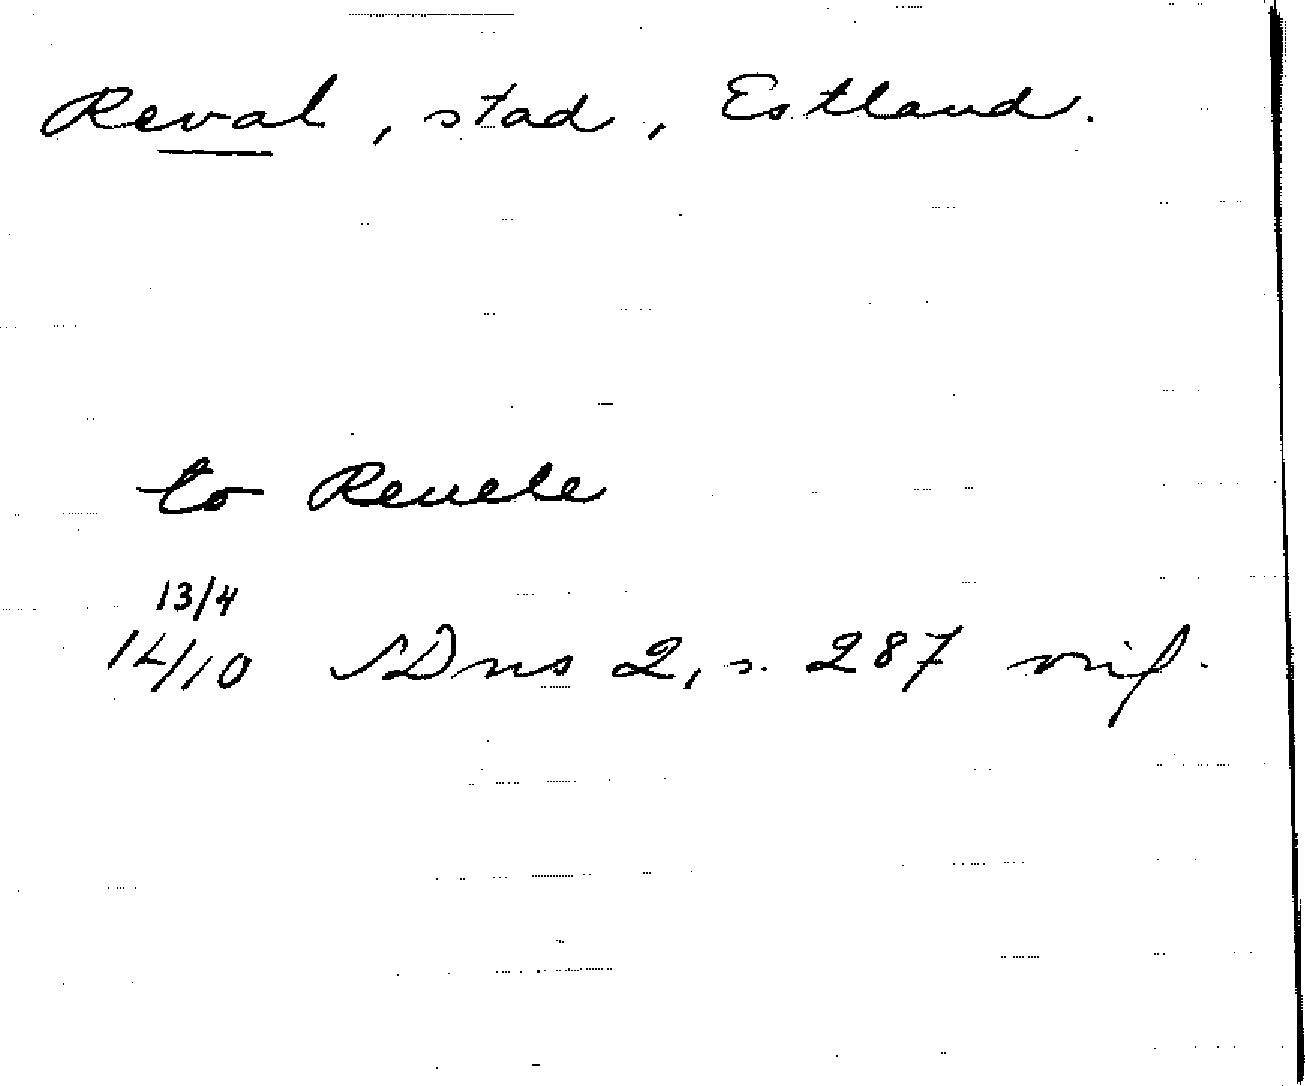 Reval, stad, Estland.
to Reuele
13/4
14/10 SDns 2, s. 287 orig.